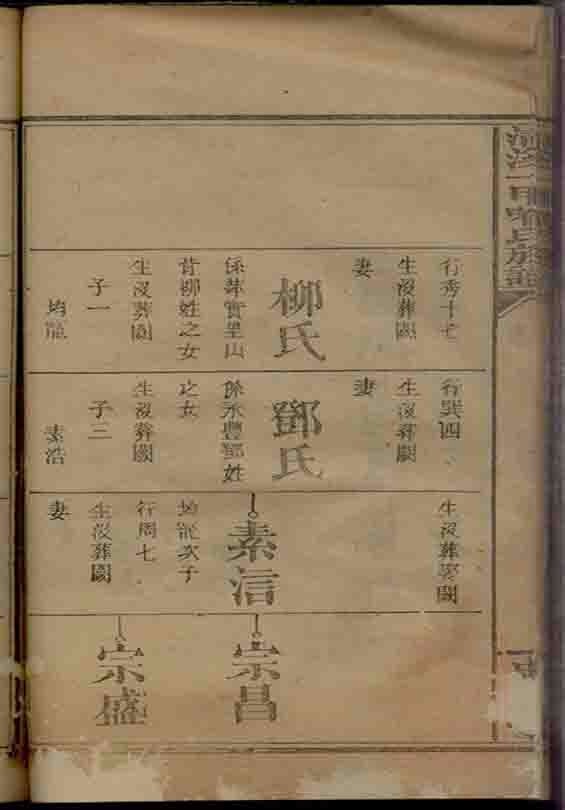 行秀十七
生沒葬闕
妻
柳氏
係茱實里山
背柳姓之女
生沒葬闕
子一
均龍
行巽四
生沒葬闕
妻
鄧氏
係永豐鄧姓
之女
生沒葬闕
子三
素浩
生沒葬娶闕
素信
均龍次子
行周七
生沒葬闕
妻
宗昌
宗盛